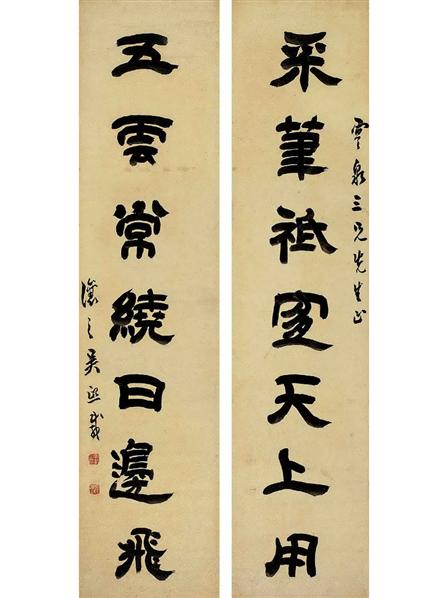 采筆祗宜天上用
雲泉三兄先生正
五雲常繞日邊飛
讓之吳熙載